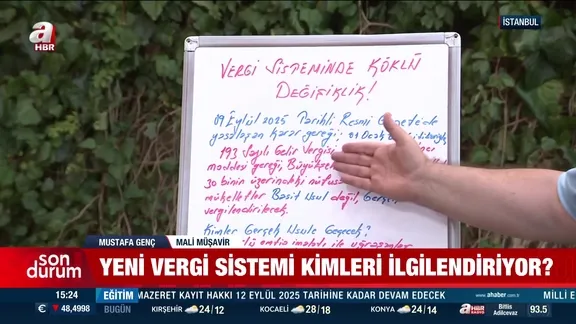 a
HBR
İSTANBUL
VERGİ SİSTEMİNDE KÖKLÜ
DEĞİŞİKLİK!
09 Eylül 2025 Tarihli Resmi Gazete'de
yasalaşan karar gereği; 01 Ocak
193 Sayılı Gelir Vergisi
maddesi gereği, Büyükşe
30 binin üzerindeki nüfus
mükellefler Basit Usul değil, Gerçe
vergilendirilecek.
Kimler Gerçek Usule Geçecek?
imalatı ile uğraşanlar
MUSTAFA GENÇ MALİ MÜŞAVİR
son
durum
YENİ VERGİ SİSTEMİ KİMLERİ İLGİLENDİRİYOR?
15:24 EĞİTİM MAZERET KAYIT HAKKI 12 EYLÜL 2025 TARİHİNE KADAR DEVAM EDECEK www.ahaber
€ 48,4998 BURDUR KIRŞEHİR 24/12 KOCAELİ 28/18 KONYA 24/14 a HABER Bitlis Adilcevaz 93.5